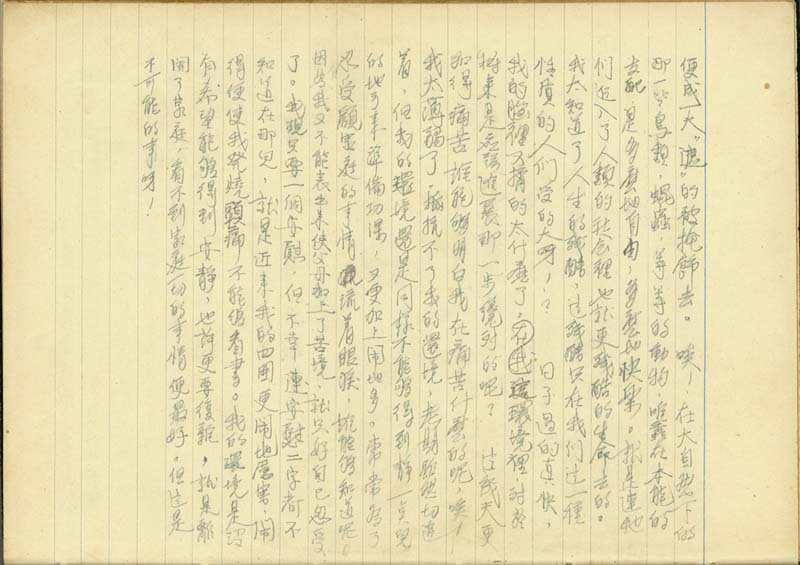 便成一大"遮"的被掩飾去。唉！在大自然下的
那一些鳥類，蝴蟲，等等的動物，唯靠在本能的
支配，是多麼地自由，多麼地快樂。
們近入了人類的社会裡也就更殘酷的生命去的。
我太知道了人生的殘酷，這殘酷只在我们这一種
性質的人们受的大呀！　日子過的真快，
我的胸裡不擠的太什麼了，在我這環境裡對於
將來是應該進展那一步纔对的呢？　这幾天更
加得痛苦誰能夠明白我在痛苦什麼的呢，唉！
我太薄弱了，抵抗不了我的環境，考期雖然切近
着，但我的環境還是同樣不能夠得到静一点兒
的地方來準備功課，又更加上閙地多。常常為了
也受顧家庭的事情 流着眼淚，誰能夠知道呢！
因为我又不能表出來使父母加上了苦境，就只好自己忍受
了。我現只要一個安慰，但不幸連安慰二字都不
知道在那兒，就是近来我的四囲更閙地厲害，閙
得使使我發燒頭痛不能夠看書。我的環境是沒
有希望能夠得到安静，也許更要復雜，就是離
開了家庭，看不到家庭一切的事情便最好。但这是
不可能的事呀！